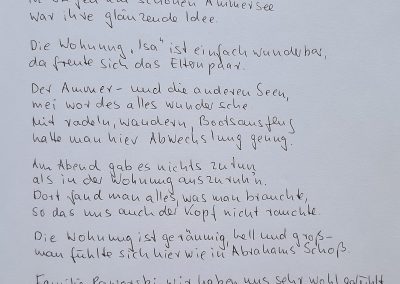 schönen Ammersee
war ihre glänzende Idee.
Die Wohnung „Isa" ist einfach wunderbar,
da freute sich das Elternpaar.
Der Ammer- und die anderen Seen,
mei wor des alles wunderschee
Mit radeln, wandern, Bootsausflug
hatte man hier Abwechslung genug.
Am Abend gab es nichts zu tun
als in der Wohnung auszuruh'n.
Dort fand man alles, was man brauchte,
so das uns auch der Kopf nicht rauchte.
Die Wohnung ist geräumig, hell und groß-
man fühlte sich hier wie in Abrahams Schoß.
Familie wir haben uns sehr wohl gefühlt